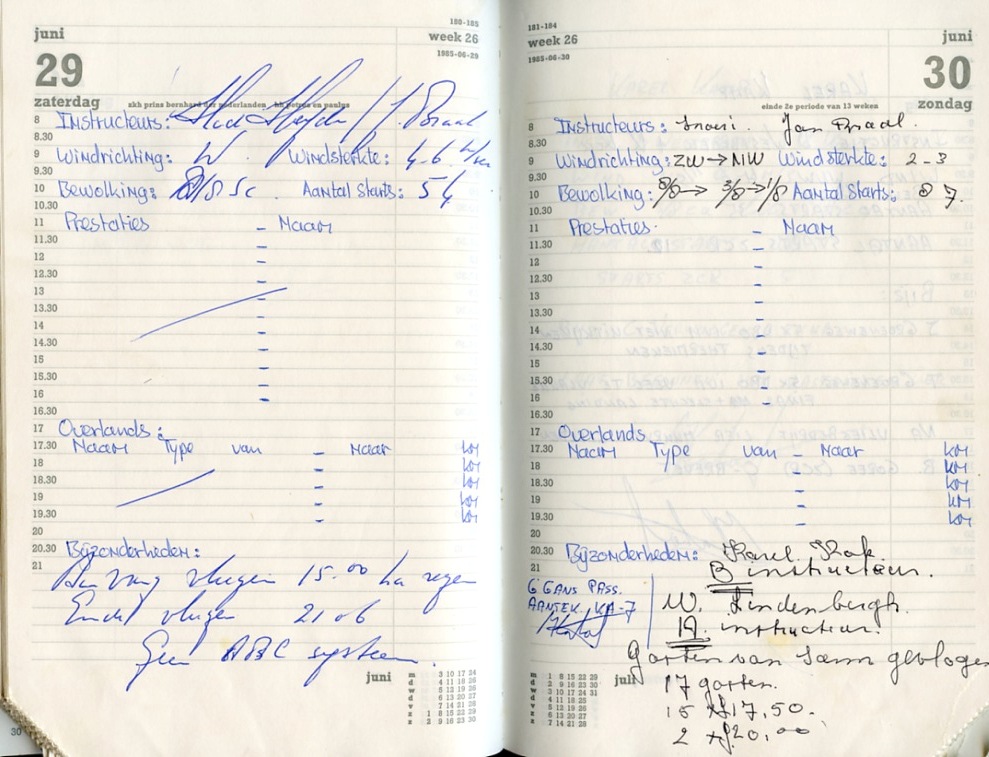 180-185
juni
week 26
1985-06-29
29
zaterdag
zkh prins bernhard der nederlanden hh petrus en paulus
8 Instructeurs: / J. Praal
8.30
9 Windrichting: W. Windsterkte: 4-6
9.30
10 Bewolking: 8/8 Sc Aantal Starts: 54
10.30
11 Prestaties - Naam
11.30 -
12 -
12.30 -
13 -
13.30 -
14 -
14.30 -
15 -
15.30 -
16 -
16.30
17 Overlands:
17.30 Naam Type van - Naar km
18 - km
18.30 - km
19 - km
19.30 - km
20
20.30 Bijzonderheden:
21 Aanvang vliegen 15.00 ha regen
Einde vliegen 21 06
Geen ABC systeem.
juni
m 3 10 17 24
d 4 11 18 25
w 5 12 19 26
d 6 13 20 27
v 7 14 21 28
z 1 8 15 22 29
z 2 9 16 23 30
30
181-184
juni
week 26
1985-06-30
30
zondag
einde 2e periode van 13 weken
8 Instructeurs: Jan Praal.
8.30
9 Windrichting: ZW→NW Windsterkte: 2-3
9.30
10 Bewolking: 8/8→ 3/8→1/8 Aantal Starts: 87.
10.30
11 Prestaties - Naam
11.30 -
12 -
12.30 -
13 -
13.30 -
14 -
14.30 -
15 -
15.30 -
16 -
16.30
17 Overlands
17.30 Naam Type van - Naar km
18 - km
18.30 - km
19 - km
19.30 - km
20
20.30 Bijzonderheden: Karel
21 B instructeur.
6 GANS PASS.
AANTEK. KA-7
W. Lindenbergh.
A. instructeur.
Gasten van Sann gevlogen
17 gasten.
15 x f17,50.
2 x f20,00
juli
m 1 8 15 22 29
d 2 9 16 23 30
w 3 10 17 24 31
d 4 11 18 25
v 5 12 19 26
z 6 13 20 27
z 7 14 21 28